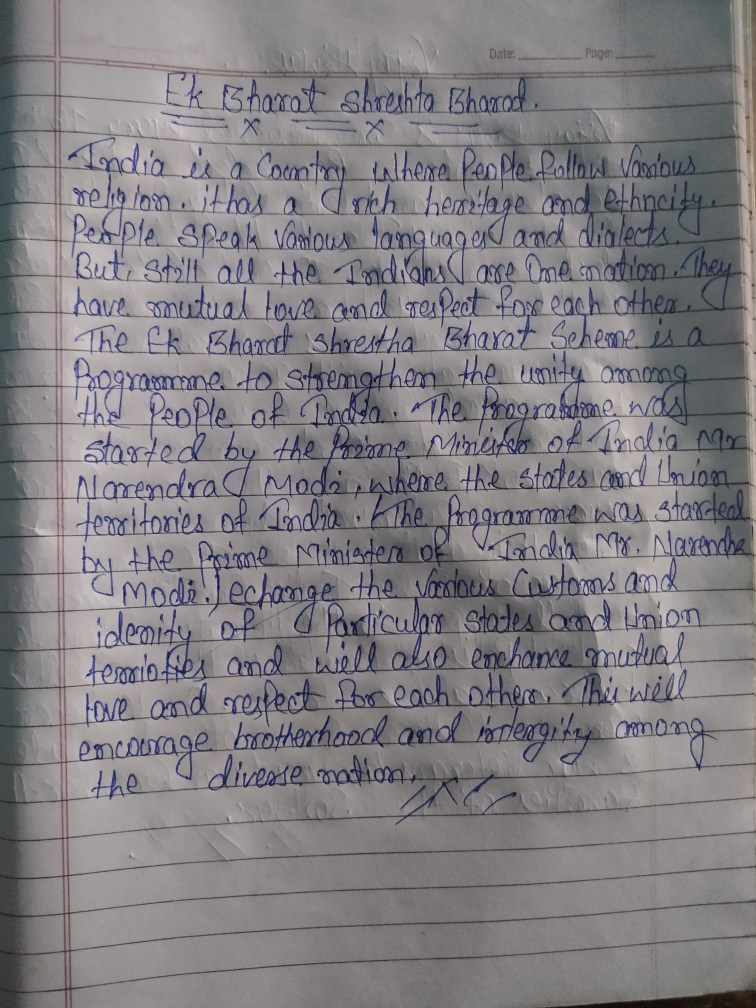 Date: Page:
Ek Bharat Shreshta Bharad.
India is a Country where People follow various
religion. it has a rich heritage and ethncity.
People Speak Various languages and dialects.
But, Still all the Indians are One nation. They
have mutual love and respect for each other.
The Ek Bharat Shrestha Bharat Scheme is a
Programme to strengthen the unity among
the People of India. The Programme was
started by the Prime Minister of India Mr
Narendra Modi, where the states and Union
territories of India. (The Programme was started
by the Prime Minister of India Mr. Narendra
Modi.) echange the various Customs and
idenity of Particular States and Union
terrioties and will also enchance mutual
love and respect for each other. This will
encourage brotherhood and intergity among
the diverse nation.